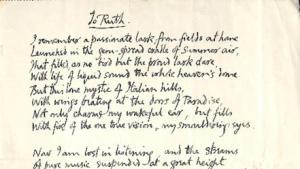 To Ruth.
I remember a passionate lark from fields at home
Launched in the gem-spread candle of summer air,
That filled, as no bird but the proud lark dare,
With life of liquid sound the whole heaven's dome
But this lone mystic of Italian hills,
With wings beating at the doors of Paradise,
Not only charms my wakeful ear, but fills
With fire of the one true vision, my smouldering eyes.
Now I am lost in listening and the streams
of pure music suspended at a great height